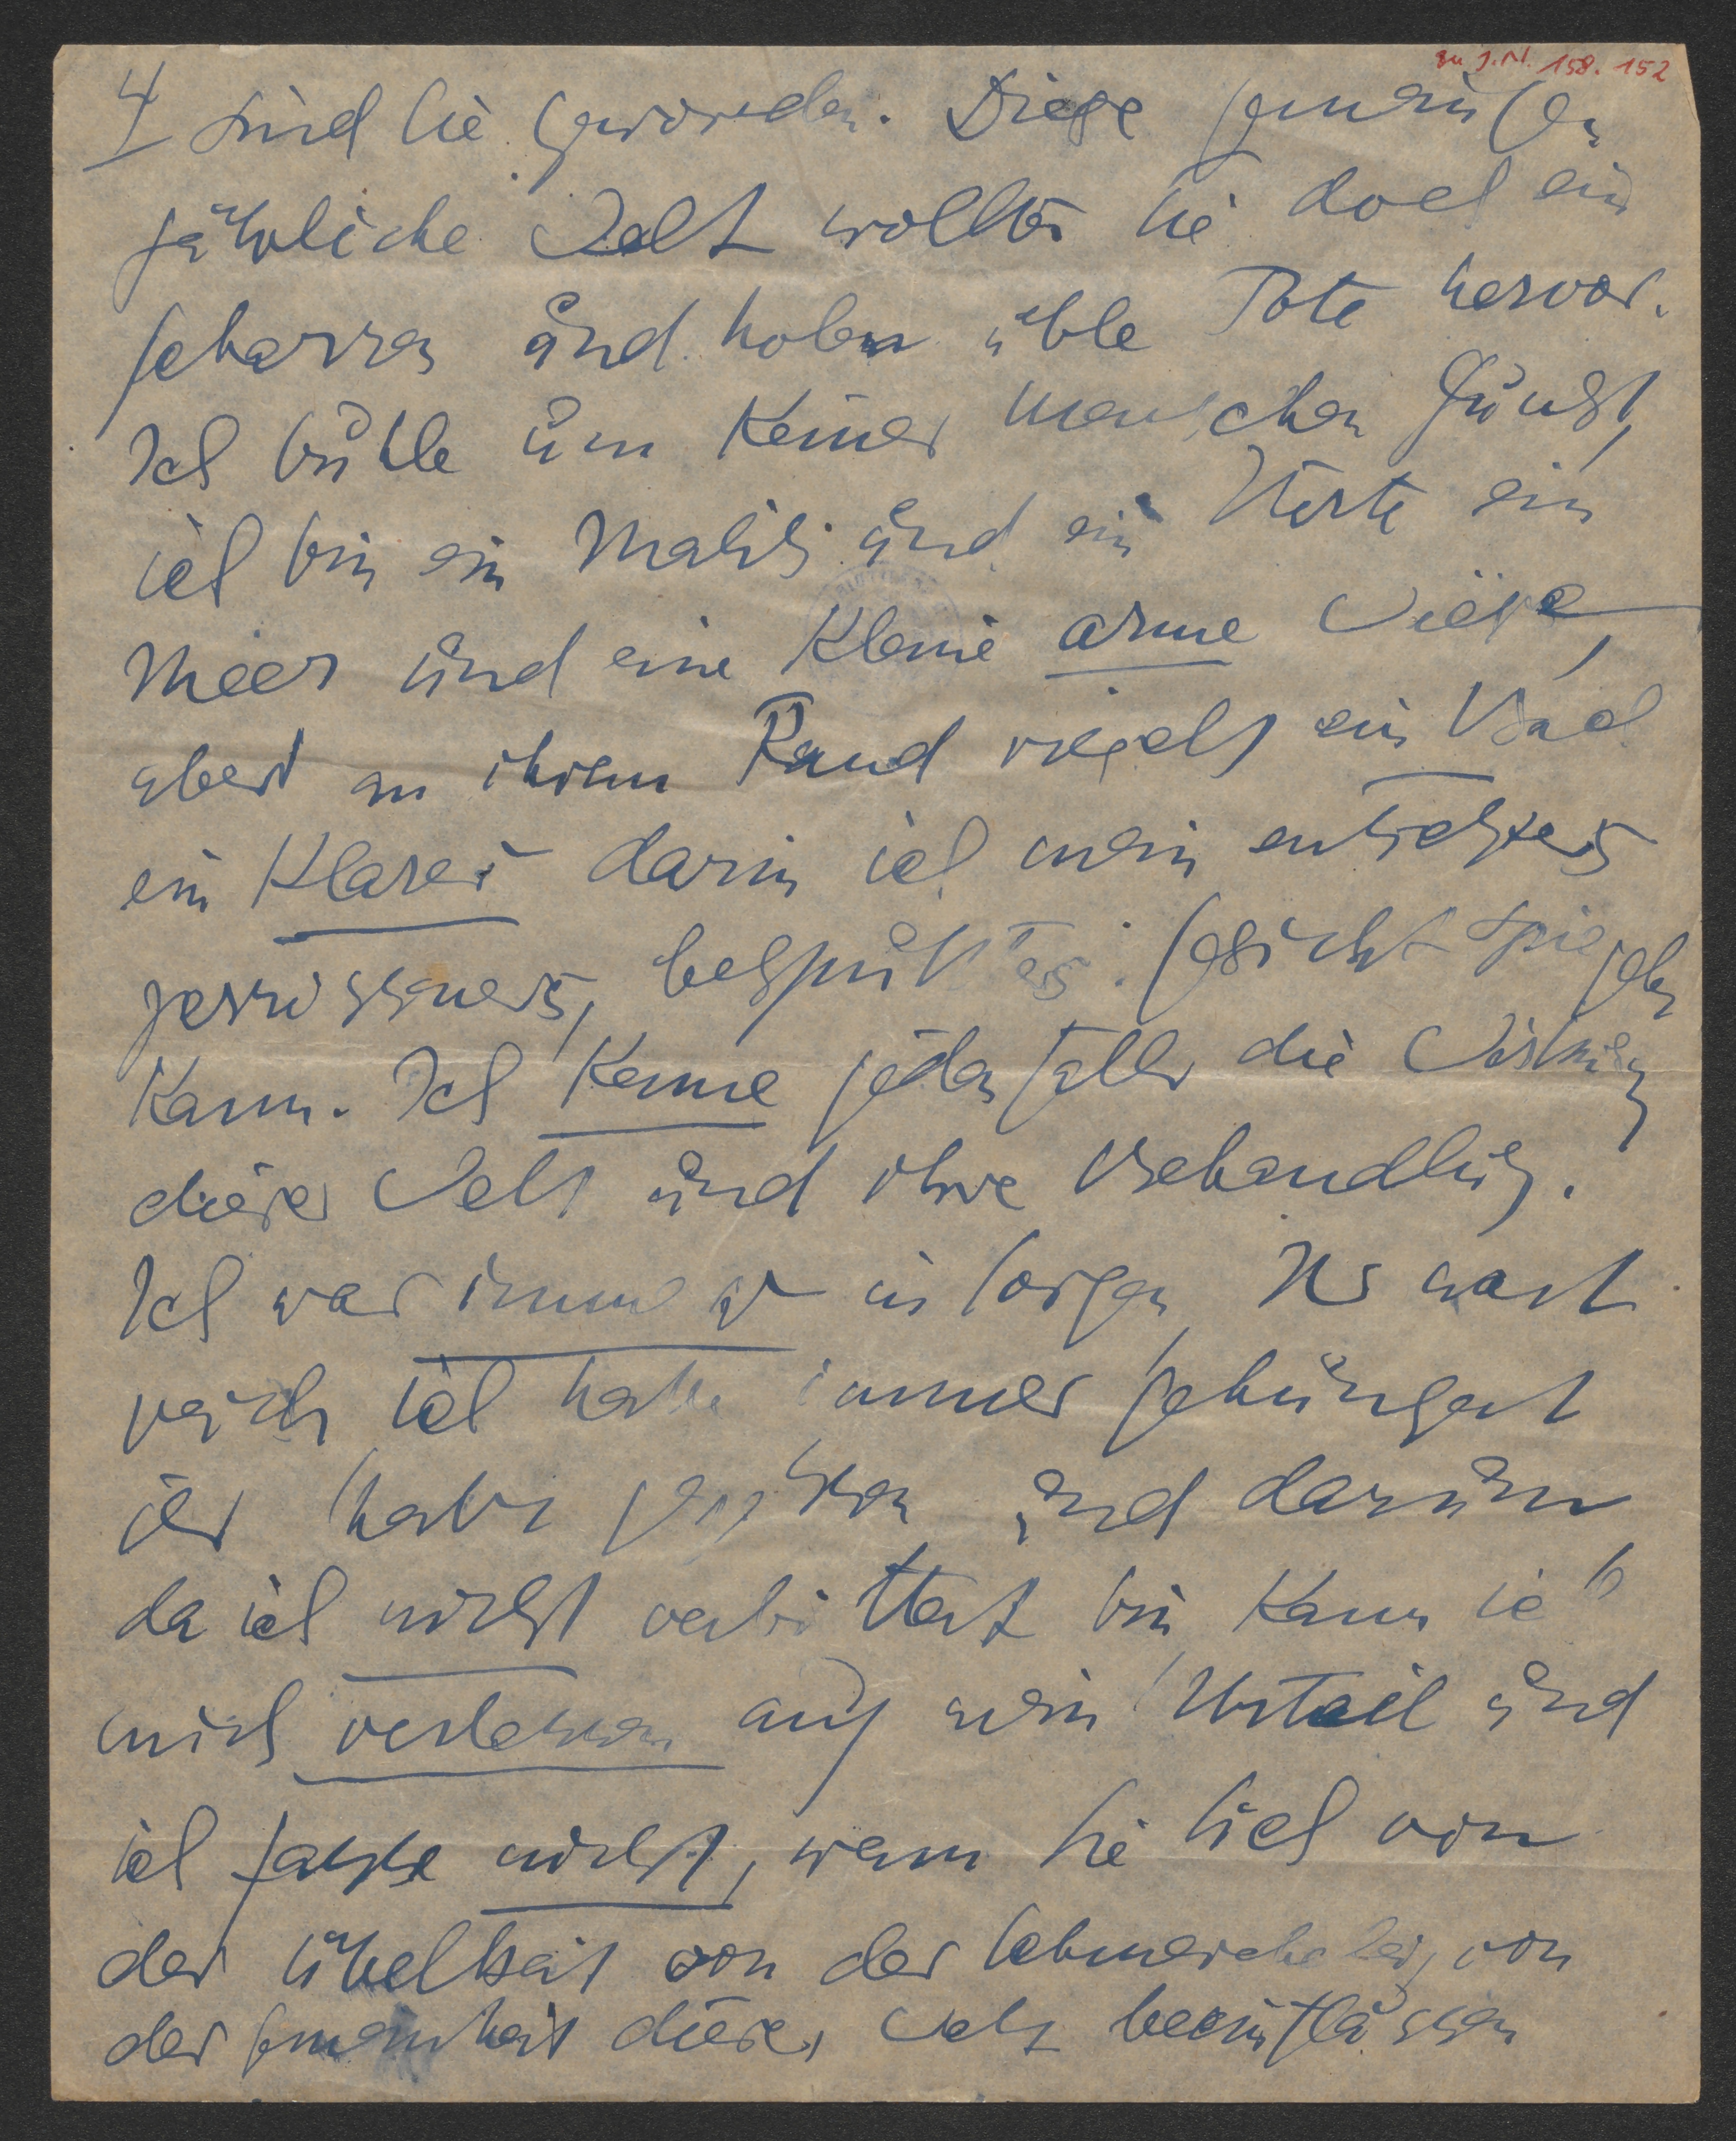 zu J.N. 158.152
4 sind Sie geworden. Diese
jährliche Welt wollten Sie doch ein
scharren und holen üble Tote hervor.
Ich buhle um keiner Menschen Gunst,
ich bin ein und ein ein
Meer und eine kleine arme Wiese,
aber an ihrem Rand ein Bach
ein klarer darin ich mein
zerrissenes, bespültes Gesicht spiegeln
kann. Ich kenne jedenfalls die Wirkung
dieser Welt und ihre Behandlung.
Ich war immer in Sorgen
ich habe immer gehungert
ich habe und darum
da ich nicht verbittert bin kann ich
mich verlassen auf mein Urteil und
ich fasse nicht, wenn Sie sich von
der Übelkeit von der von
der Gemeinheit dieser Welt beeinflussen